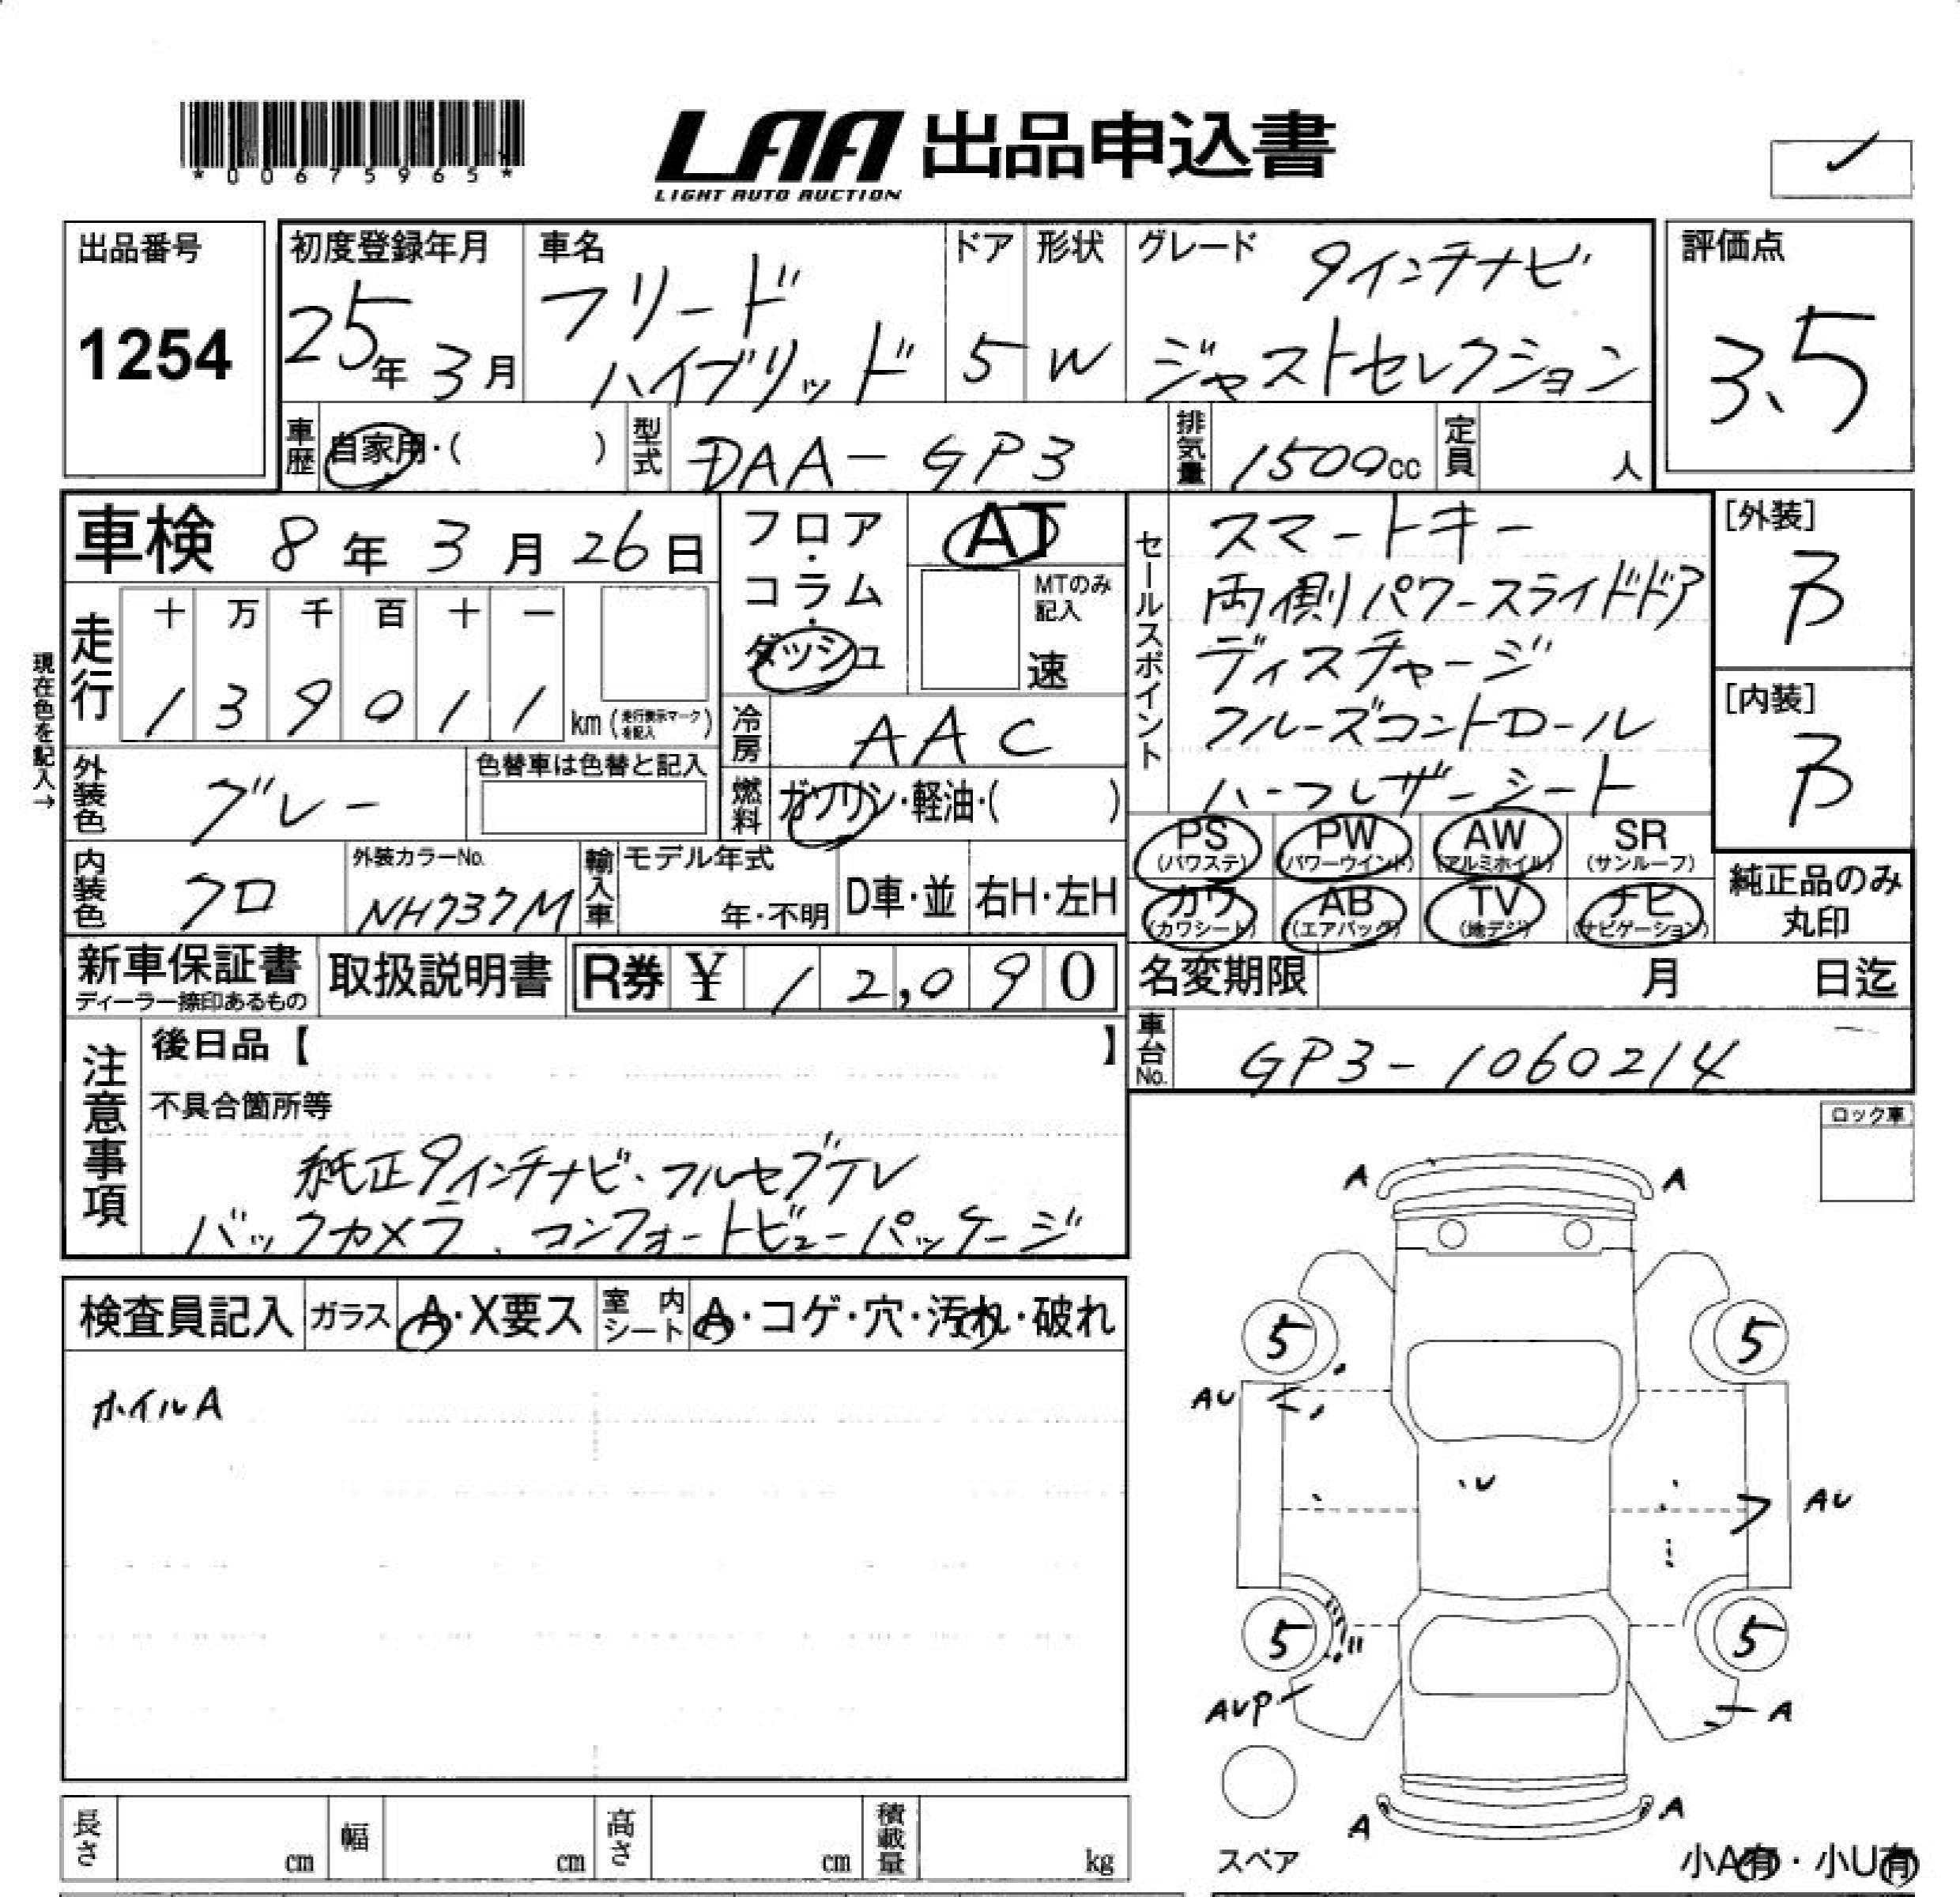 *00675965*
LAA 出品申込書
LIGHT AUTO AUCTION
出品番号
1254
初度登録年月
25年3月
車名
フリード
ハイブリッド
ドア
5
形状
W
グレード
9インチナビ
ジャストセレクション
評価点
3.5
車歴 自家用・( )
型式 DAA-GP3
排気量 1500cc
定員 人
車検 8年3月26日
現在色を記入→
走行
十 万 千 百 十 一
1 3 9 0 1 1 km (走行表示マークを記入)
フロア・コラム・ダッシュ
AT
MTのみ記入
速
冷房 AAC
燃料 ガソリン・軽油・( )
セールスポイント
スマートキー
両側パワースライドドア
ディスチャージ
クルーズコントロール
ハーフレザーシート
[外装]
B
[内装]
B
外装色 グレー
色替車は色替と記入
内装色 クロ
外装カラーNo.
NH737M
輸入車
モデル年式
年・不明
D車・並
右H・左H
PS (パワステ)
PW (パワーウインド)
AW (アルミホイル)
SR (サンルーフ)
カワ (カワシート)
AB (エアバッグ)
TV (地デジ)
ナビ (ナビゲーション)
純正品のみ
丸印
新車保証書
ディーラー捺印あるもの
取扱説明書
R券 ¥ 12,090
名変期限 月 日迄
車台No. GP3-1060214
注意事項
後日品【 】
不具合箇所等
純正9インチナビ、フルセグTV
バックカメラ、コンフォートビューパッケージ
ロック車
検査員記入
ガラス A・X要ス
室内シート A・コゲ・穴・汚れ・破れ
ホイルA
A A
5 5
AU
U
AU
5 5
AUP
A
A A
スペア
小A有・小U有
長さ cm
幅 cm
高さ cm
積載量 kg